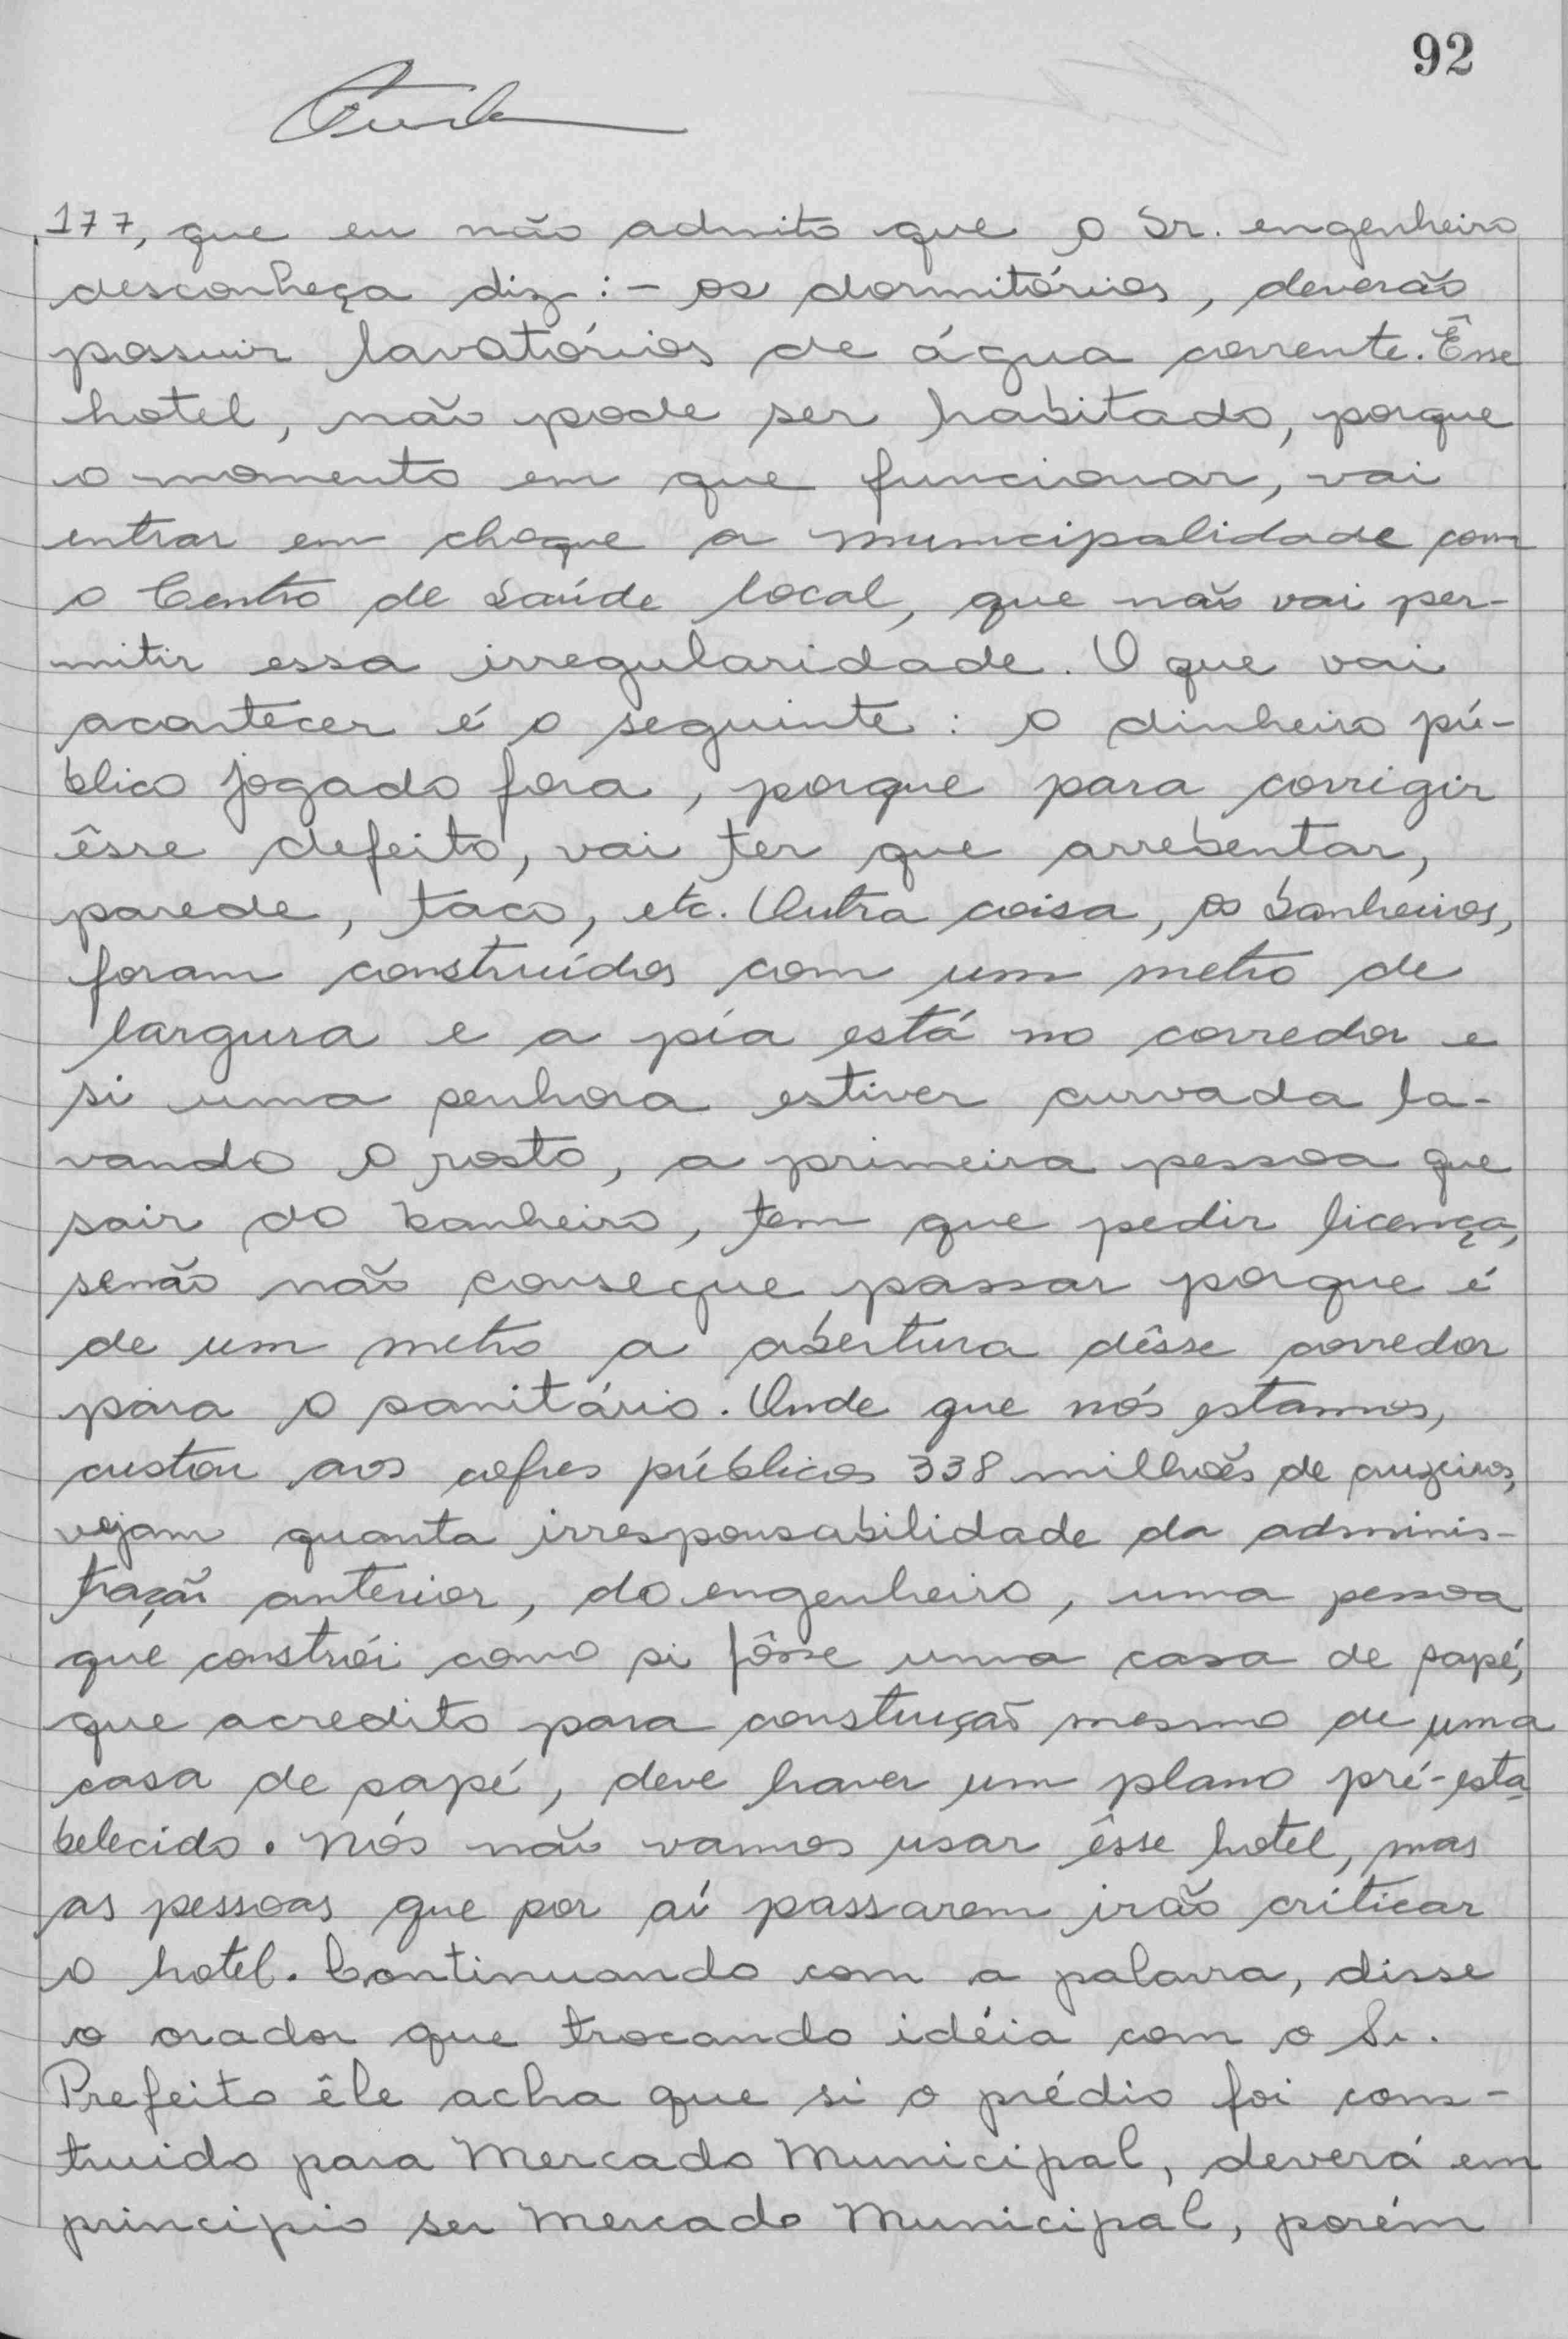 92
177, que eu não admito que o Sr. engenheiro
desconheça diz:- os dormitórios, deverão
possuir lavatórios de água corrente. Êsse
hotel, não pode ser habitado, porque
o momento em que funcionar, vai
entrar em choque a municipalidade com
o Centro de Saúde local, que não vai per-
mitir essa irregularidade. O que vai
acontecer é o seguinte: o dinheiro pú-
blico jogado fora, porque para corrigir
êsse defeito, vai ter que arrebentar,
parede, taco, etc. Outra coisa, os banheiros,
foram construídos com um metro de
largura e a pia está no corredor e
si uma senhora estiver curvada la-
vando o rosto, a primeira pessoa que
sair do banheiro, tem que pedir licença,
senão não consegue passar porque é
de um metro a abertura dêsse corredor
para o sanitário. Onde que nós estamos,
custou aos cofres públicos 338 milhões de cruzeiros,
vejam quanta irresponsabilidade da adminis-
tração anterior, do engenheiro, uma pessoa
que constrói como si fôsse uma casa de sapé,
que acredito para construção mesmo de uma
casa de sapé, deve haver um plano pré-esta
belecido. Nós não vamos usar êsse hotel, mas
as pessoas que por aí passarem irão criticar
o hotel. Continuando com a palavra, disse
o orador que trocando idéia com o Sr.
Prefeito êle acha que si o prédio foi cons-
truido para Mercado Municipal, deverá em
principio ser Mercado Municipal, porém